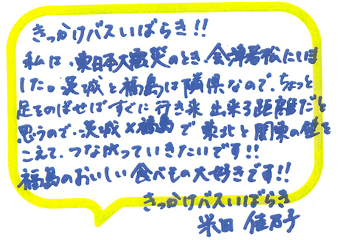 きっかけバスいばらき!!
私は、東日本大震災のとき会津若松にいま
した。茨城と福島は隣県なので、ちょっと
足をのばせばすぐに行き来出来る距離だと
思うので、茨城×福島で東北と関東の壁を
こえて、つながっていきたいです!!
福島のおいしい食べもの大好きです!!
きっかけバスいばらき
米田 佳乃子